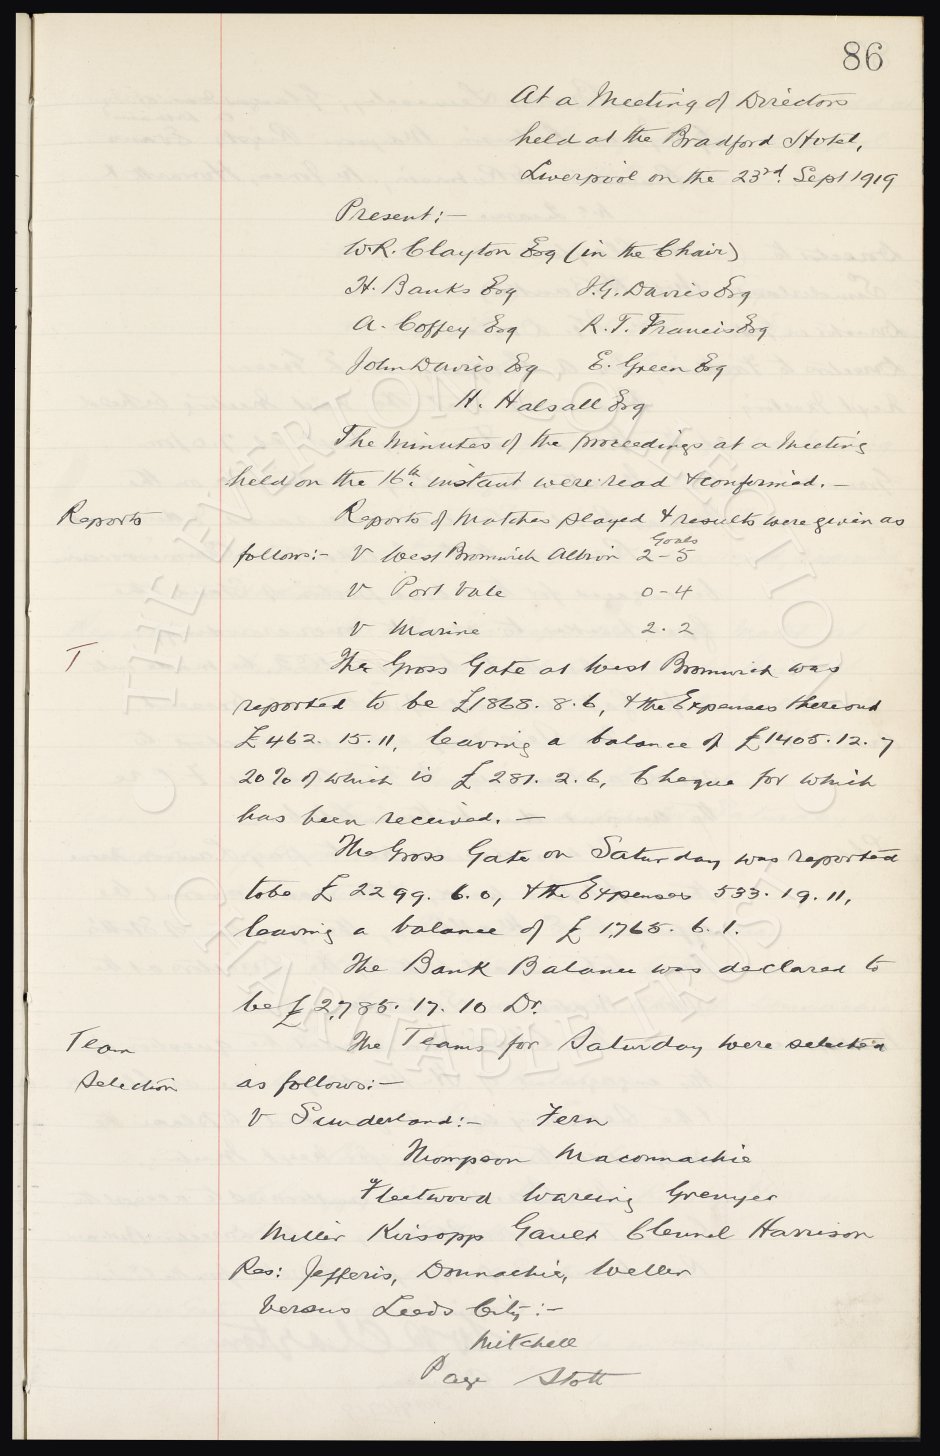 86
At a Meeting of Directors
held at the Bradford Hotel,
Liverpool on the 23rd. Sept 1919
Present:-
W.R. Clayton Esq (in the Chair)
H. Banks Esq J.G. Davies Esq
A. Coffey Esq R.T. Francis Esq
John Davies Esq E. Green Esq
H. Halsall Esq
The Minutes of the proceedings at a Meeting
held on the 16th. instant were read & confirmed. -
Reports Reports of Matches played & results were given as
Goals
follows:- V West Bromwich Albion 2-5
V Port Vale 0-4
V Marine 2.2
T The Gross Gate at West Bromwich was
reported to be £1868. 8. 6, & the Expenses thereout
£462. 15. 11, leaving a balance of £1405. 12. 7
20% of which is £281. 2. 6, Cheque for which
has been received. -
The Gross Gate on Saturday was reported
to be £2299. 6. 0, & the Expenses 533. 19. 11,
leaving a balance of £1,765. 6. 1.
The Bank Balance was declared to
be £2,785. 17. 10 Dr.
Team The Teams for Saturday were selected
Selection as follows:-
V Sunderland:- Fern
Thompson Maconnachie
Fleetwood Wareing Grenyer
Miller Kirsopp Gault Clennel Harrison
Res: Jefferis, Donnachie, Weller
Versus Leeds City:-
Mitchell
Page Stott